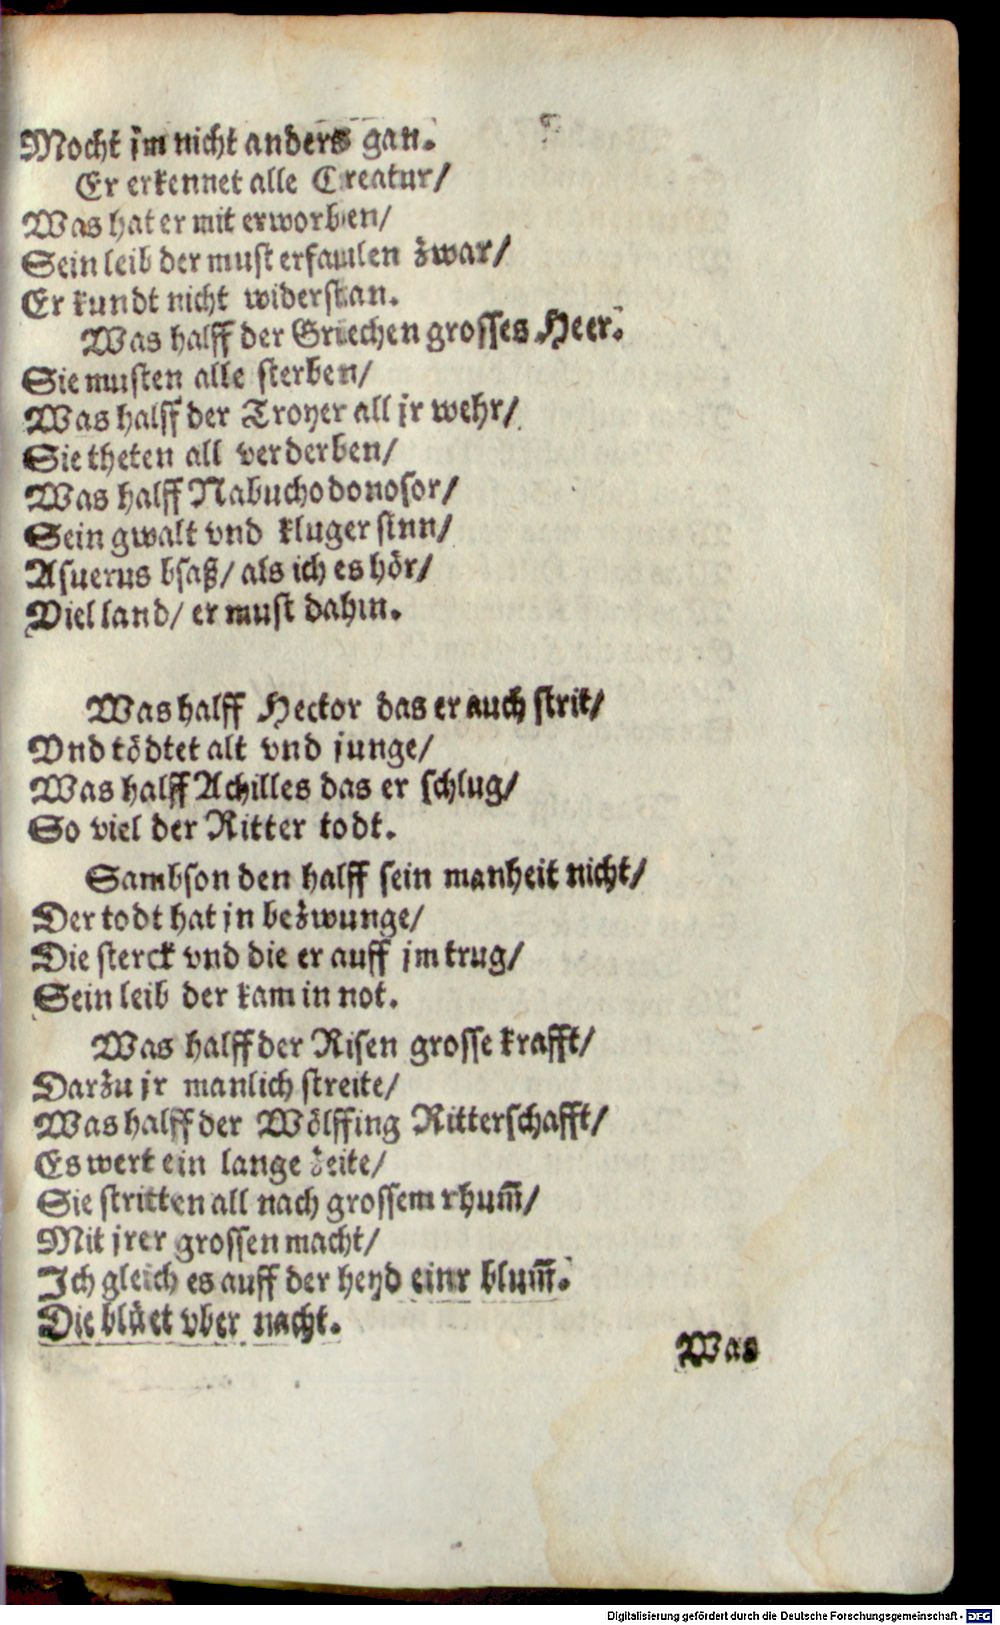 Mocht jm nicht anders gan.
Er erkennet alle Creatur/
Was hat er mit erworben/
Sein leib der must erfaulen zwar/
Er kundt nicht widerstan.
Was halff der Griechen grosses Heer.
Sie musten alle sterben/
Was halff der Troyer all jr wehr/
Sie theten all verderben/
Was halff Nabuchodonosor/
Sein gwalt vnd kluger sinn/
Asuerus bsaß/ als ich es hör/
Viel land/ er must dahin.
Was halff Hector das er auch strit/
Vnd tödtet alt vnd junge/
Was halff Achilles das er schlug/
So viel der Ritter todt.
Sambson den halff sein manheit nicht/
Der todt hat jn bezwunge/
Die sterck vnd die er auff jm trug/
Sein leib der kam in not.
Was halff der Risen grosse krafft/
Darzu jr manlich streite/
Was halff der Wölffing Ritterschafft/
Es wert ein lange zeite/
Sie stritten all nach grossem rhum̅/
Mit jrer grossen macht/
Ich gleich es auff der heyd einr blum̅.
Die blüet vber nacht.
Was
Digitalisierung gefördert durch die Deutsche Forschungsgemeinschaft - DFG